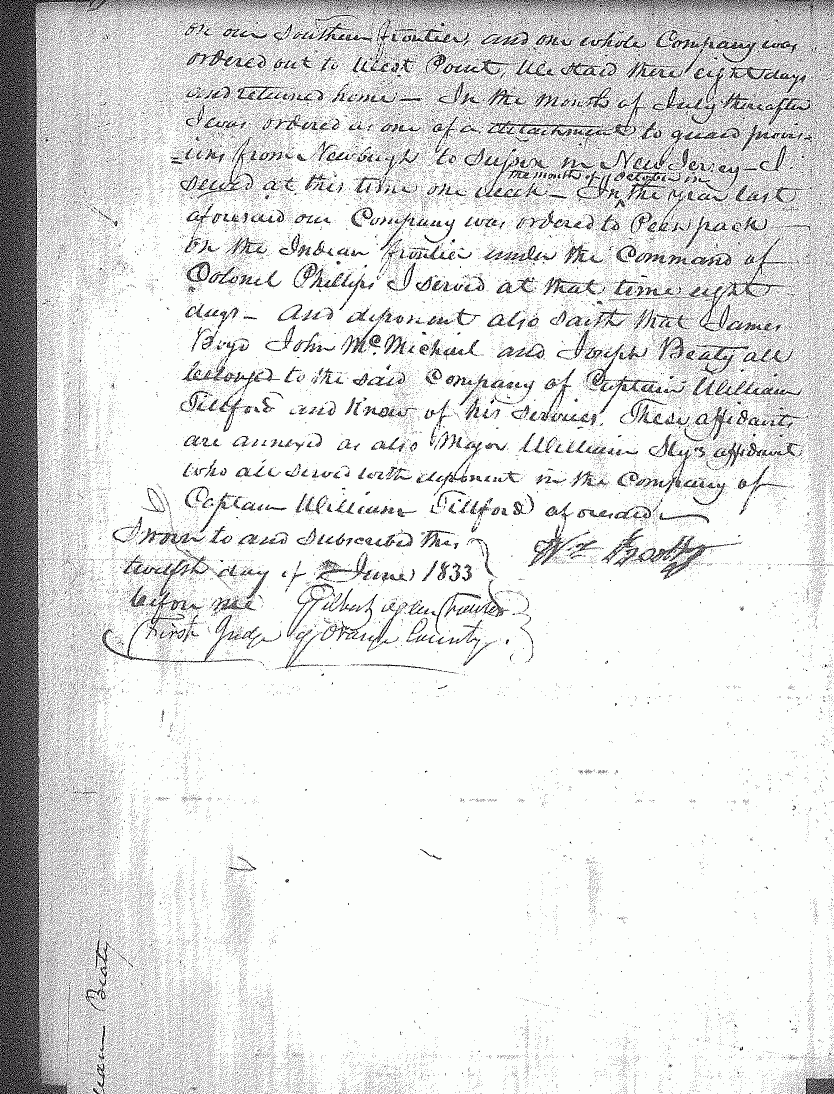 on our Southern frontier, and one whole Company was
ordered out to West Point, We staid there eight days
and returned home — In the month of July thereafter
I was ordered as one of a detachment to guard provis-
=ions from Newburgh to in New Jersey — I
the month of October in
served at this time one week — In the year last
aforesaid our Company was ordered to Peenpack
on the Indian frontier under the Command of
Colonel Phillips I served at that time eight
days — And deponent also saith that James
Boyd John McMichael and Joseph Beaty all
belonged to the said Company of Captain William
Tillford and know of his services. These affidavits
are annexed as also Major William affidavit
who all served with deponent in the Company of
Captain William Tillford aforesaid —
Sworn to and subscribed this
twelfth day of June 1833
before me Gilbert
First Judge of Orange County.
Wm Beatty
liam Beaty